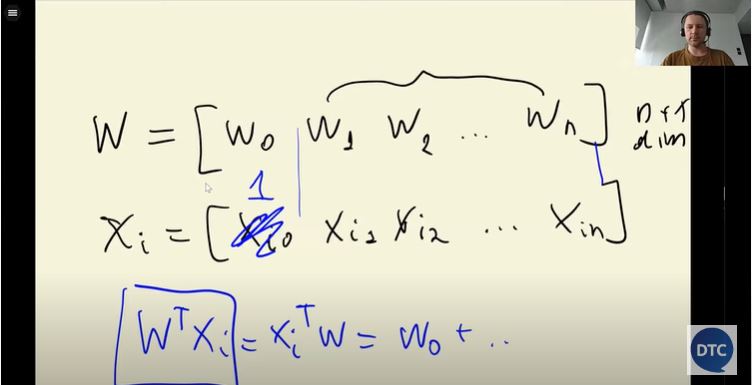 W = [ w₀ w₁ w₂ ... wₙ ] n+1 dim
1
xᵢ = [ xᵢ₀ xᵢ₁ xᵢ₂ ... xᵢₙ ]
Wᵀxᵢ = xᵢᵀW = w₀ + ..
DTC